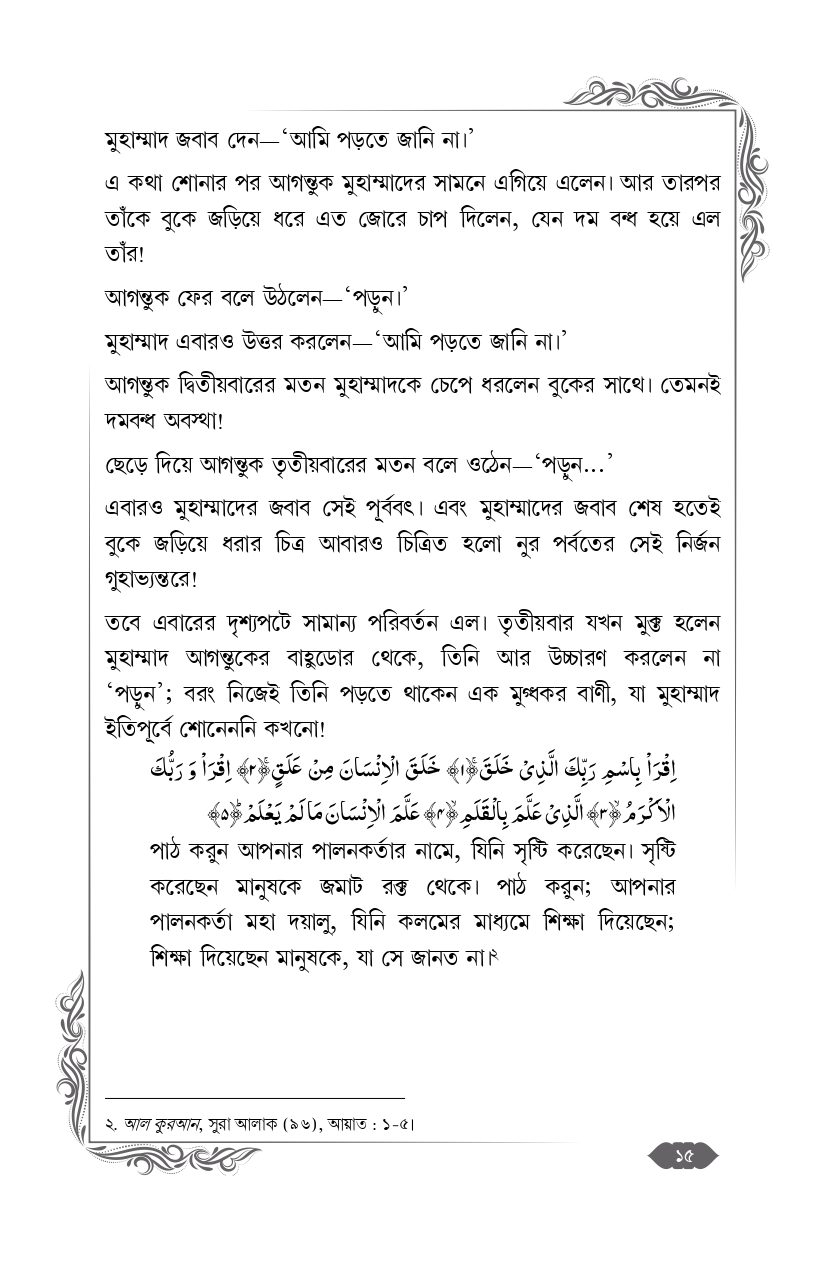 মুহাম্মাদ জবাব দেন—‘আমি পড়তে জানি না।’
এ কথা শোনার পর আগন্তুক মুহাম্মাদের সামনে এগিয়ে এলেন। আর তারপর
তাঁকে বুকে জড়িয়ে ধরে এত জোরে চাপ দিলেন, যেন দম বন্ধ হয়ে এল
তাঁর!
আগন্তুক ফের বলে উঠলেন—‘পড়ুন।’
মুহাম্মাদ এবারও উত্তর করলেন—‘আমি পড়তে জানি না।’
আগন্তুক দ্বিতীয়বারের মতন মুহাম্মাদকে চেপে ধরলেন বুকের সাথে। তেমনই
দমবন্ধ অবস্থা!
ছেড়ে দিয়ে আগন্তুক তৃতীয়বারের মতন বলে ওঠেন—‘পড়ুন...’
এবারও মুহাম্মাদের জবাব সেই পূর্ববৎ। এবং মুহাম্মাদের জবাব শেষ হতেই
বুকে জড়িয়ে ধরার চিত্র আবারও চিত্রিত হলো নুর পর্বতের সেই নির্জন
গুহাভ্যন্তরে!
তবে এবারের দৃশ্যপটে সামান্য পরিবর্তন এল। তৃতীয়বার যখন মুক্ত হলেন
মুহাম্মাদ আগন্তুকের বাহুডোর থেকে, তিনি আর উচ্চারণ করলেন না
‘পড়ুন’; বরং নিজেই তিনি পড়তে থাকেন এক মুগ্ধকর বাণী, যা মুহাম্মাদ
ইতিপূর্বে শোনেননি কখনো!
اِقْرَاْ بِاسْمِ رَبِّكَ الَّذِیْ خَلَقَ ۚ﴿۱﴾ خَلَقَ الْاِنْسَانَ مِنْ عَلَقٍ ۚ﴿۲﴾ اِقْرَاْ وَ رَبُّكَ
الْاَكْرَمُ ۙ﴿۳﴾ الَّذِیْ عَلَّمَ بِالْقَلَمِ ۙ﴿۴﴾ عَلَّمَ الْاِنْسَانَ مَا لَمْ یَعْلَمْ ؕ﴿۵﴾
পাঠ করুন আপনার পালনকর্তার নামে, যিনি সৃষ্টি করেছেন। সৃষ্টি
করেছেন মানুষকে জমাট রক্ত থেকে। পাঠ করুন; আপনার
পালনকর্তা মহা দয়ালু, যিনি কলমের মাধ্যমে শিক্ষা দিয়েছেন;
শিক্ষা দিয়েছেন মানুষকে, যা সে জানত না।২
২. আল কুরআন, সুরা আলাক (৯৬), আয়াত : ১-৫।
১৫